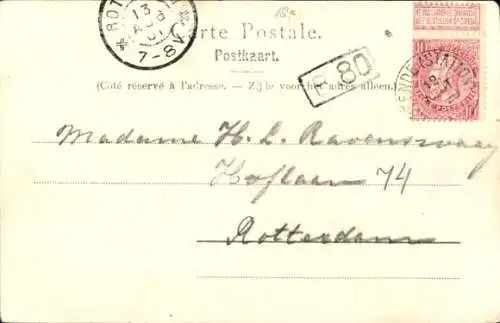 18.-
ROT
13
AUG
01
7-8V
Carte Postale.
Postkaart.
(Côté réservé à l'adresse. — Zij le voor het adres alleen.)
B 80
10
OSTENDE (STATION)
12
Madame H. L. Ravenswaay
Hoflaan 74
Rotterdam